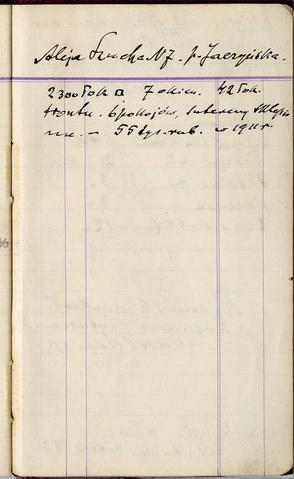 Aleja Szucha N7. p. Jaczyńska.
2300 łok □ 7 okien. 42 łok.
frontu. 6 pokojów, sutereny sklepio
ne. — 55 tys. rub. w 1911 r.